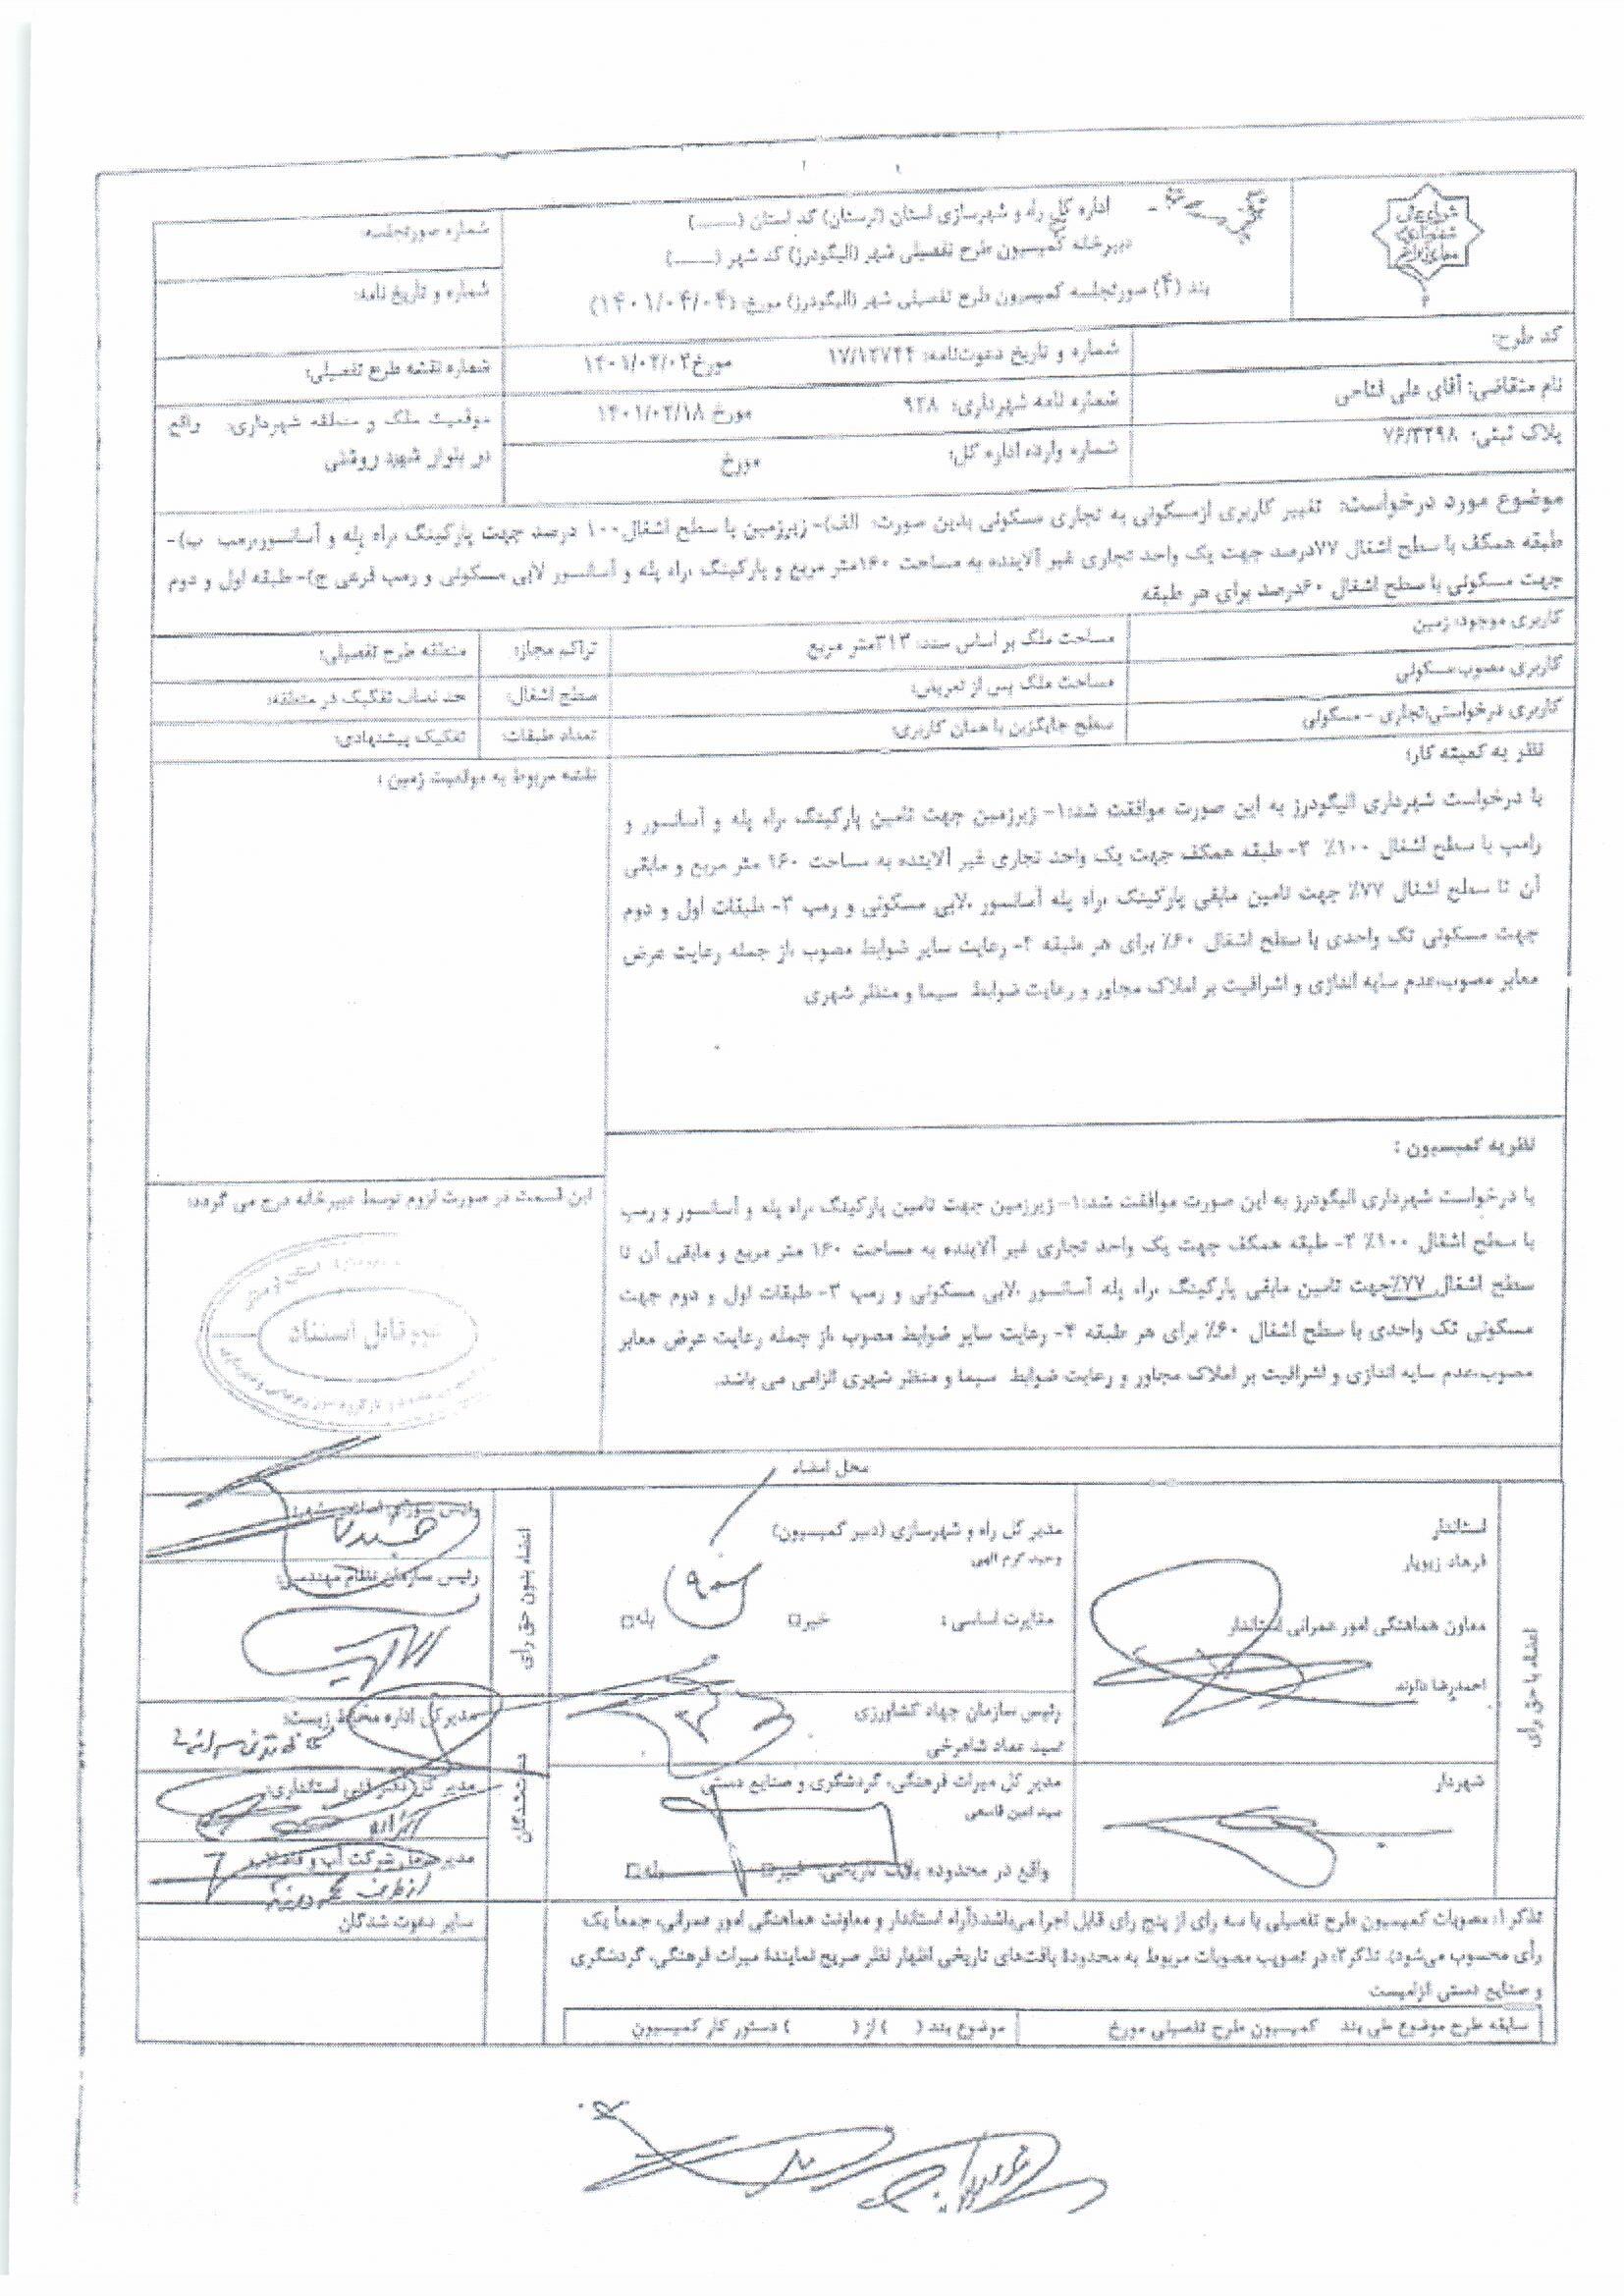 شورای عالی
شهرسازی و
معماری ایران
اداره کل راه و شهرسازی استان (لرستان) کد استان (......)
دبیرخانه کمیسیون طرح تفصیلی شهر (الیگودرز) کد شهر (......)
بند (۴) صورتجلسه کمیسیون طرح تفصیلی شهر (الیگودرز) مورخ: (۱۴۰۱/۰۴/۰۴)
شماره صورتجلسه:
شماره و تاریخ نامه:
کد طرح:
شماره و تاریخ دعوت‌نامه: ۱۷/۱۲۷۴۴ مورخ ۱۴۰۱/۰۴/۰۲
شماره نقشه طرح تفصیلی:
نام متقاضی: آقای علی فتاحی
شماره نامه شهرداری: ۹۲۸ مورخ ۱۴۰۱/۰۳/۱۸
موقعیت ملک و منطقه شهرداری: واقع
در بلوار شهید روشنی
پلاک ثبتی: ۷۶/۳۲۹۸
شماره وارده اداره کل: مورخ
موضوع مورد درخواست: تغییر کاربری ازمسکونی به تجاری مسکونی بدین صورت: الف)- زیرزمین با سطح اشغال ۱۰۰ درصد جهت پارکینگ ،راه پله و آسانسور،رمپ ب)-
طبقه همکف با سطح اشغال ۷۷درصد جهت یک واحد تجاری غیر آلاینده به مساحت ۱۶۰متر مربع و پارکینگ ،راه پله و آسانسور لابی مسکونی و رمپ فرعی ج)- طبقه اول و دوم
جهت مسکونی با سطح اشغال ۶۰درصد برای هر طبقه
کاربری موجود: زمین
مساحت ملک بر اساس سند: ۳۱۳متر مربع
تراکم مجاز:
منطقه طرح تفصیلی:
کاربری مصوب:مسکونی
مساحت ملک پس از تعریض:
سطح اشغال:
حد نصاب تفکیک در منطقه:
کاربری درخواستی:تجاری - مسکونی
سطح جایگزین با همان کاربری:
تعداد طبقات:
تفکیک پیشنهادی:
نظریه کمیته کار:
با درخواست شهرداری الیگودرز به این صورت موافقت شد:۱- زیرزمین جهت تامین پارکینگ ،راه پله و آسانسور و
رامپ با سطح اشغال ۱۰۰٪ ۲- طبقه همکف جهت یک واحد تجاری غیر آلاینده به مساحت ۱۶۰ متر مربع و مابقی
آن تا سطح اشغال ۷۷٪ جهت تامین مابقی پارکینگ ،راه پله آسانسور ،لابی مسکونی و رمپ ۳- طبقات اول و دوم
جهت مسکونی تک واحدی با سطح اشغال ۶۰٪ برای هر طبقه ۴- رعایت سایر ضوابط مصوب ،از جمله رعایت عرض
معابر مصوب،عدم سایه اندازی و اشرافیت بر املاک مجاور و رعایت ضوابط سیما و منظر شهری
نقشه مربوط به موقعیت زمین :
نظریه کمیسیون :
با درخواست شهرداری الیگودرز به این صورت موافقت شد:۱- زیرزمین جهت تامین پارکینگ ،راه پله و آسانسور و رمپ
با سطح اشغال ۱۰۰٪ ۲- طبقه همکف جهت یک واحد تجاری غیر آلاینده به مساحت ۱۶۰ متر مربع و مابقی آن تا
سطح اشغال ۷۷٪جهت تامین مابقی پارکینگ ،راه پله آسانسور ،لابی مسکونی و رمپ ۳- طبقات اول و دوم جهت
مسکونی تک واحدی با سطح اشغال ۶۰٪ برای هر طبقه ۴- رعایت سایر ضوابط مصوب ،از جمله رعایت عرض معابر
مصوب،عدم سایه اندازی و اشرافیت بر املاک مجاور و رعایت ضوابط سیما و منظر شهری الزامی می باشد.
این قسمت در صورت لزوم توسط دبیرخانه درج می گردد:
غیر قابل استناد
محل امضاء
اعضاء با حق رای
استاندار
فرهاد زیویار
معاون هماهنگی امور عمرانی استاندار
احمدرضا دالوند
شهردار
مدیر کل راه و شهرسازی (دبیر کمیسیون)
وحید کرم الهی
مغایرت اساسی : خیر □ بله □
رئیس سازمان جهاد کشاورزی
سید عماد شاهرخی
مدیر کل میراث فرهنگی، گردشگری و صنایع دستی
سید امین قاسمی
واقع در محدوده بافت تاریخی: خیر □ بله □
اعضاء بدون حق رای
رئیس شورای اسلامی شهر:
رئیس سازمان نظام مهندسی:
دعوت شدگان
مدیرکل اداره محیط زیست:
مدیر کل دفتر فنی استانداری:
مدیر عامل شرکت آب و فاضلاب:
سایر دعوت شدگان
تذکر ۱: مصوبات کمیسیون طرح تفصیلی با سه رای از پنج رای قابل اجرا می‌باشد.(آراء استاندار و معاونت هماهنگی امور عمرانی، جمعاً یک
رأی محسوب می‌شود). تذکر۲: در تصویب مصوبات مربوط به محدودۀ بافت‌های تاریخی اظهار نظر صریح نمایندۀ میراث فرهنگی، گردشگری
و صنایع دستی الزامیست
سابقه طرح موضوع طی بند کمیسیون طرح تفصیلی مورخ
موضوع بند ( ) از ( ) دستور کار کمیسیون